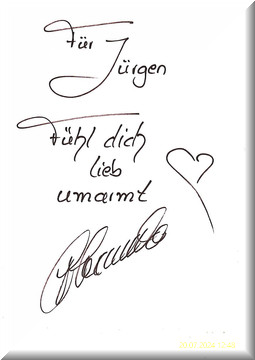 Für
Jürgen
Fühl dich
lieb
umarmt